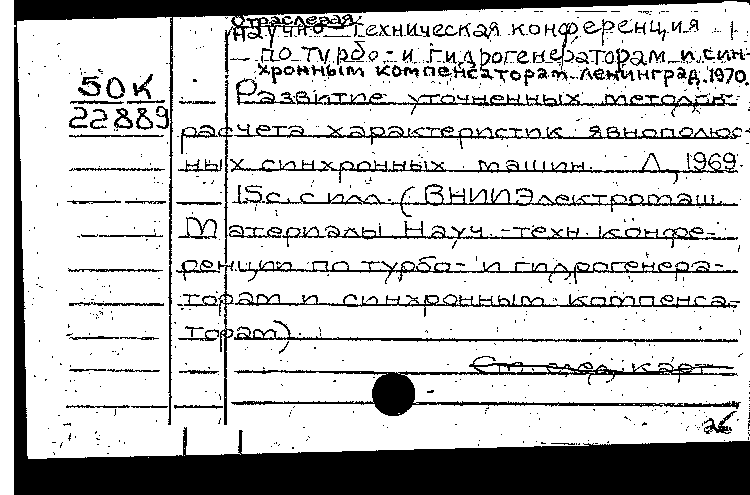 Отраслевая
научно-техническая конференция
по турбо- и гидрогенераторам и син-
хронным компенсаторам. Ленинград. 1970.
50К
22889
Развитие уточненных методов
расчета характеристик явнополюс-
ных синхронных машин. Л., 1969.
15с. с илл. (ВНИИЭлектромаш.
Материалы Науч.-техн. конфе-
ренции по турбо- и гидрогенера-
торам и синхронным компенса-
торам).
См. след. карт